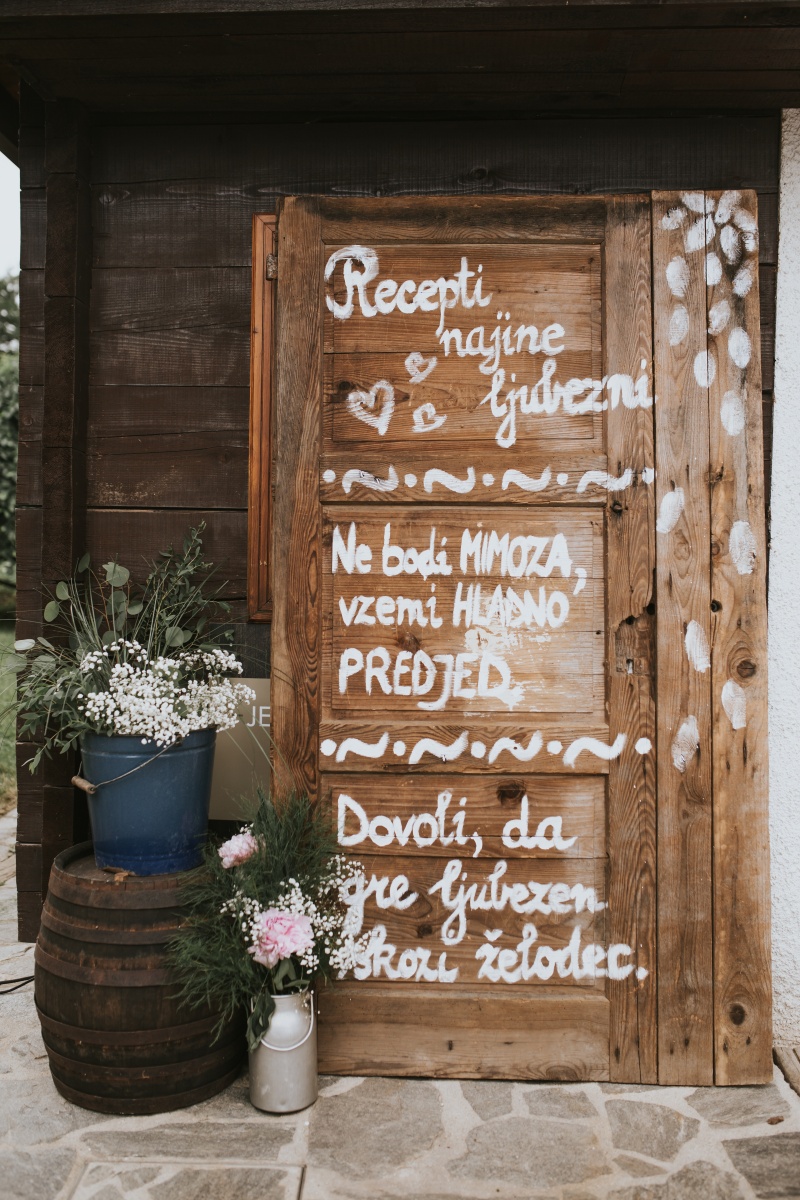 Recepti
najine
ljubezni
Ne bodi MIMOZA,
vzemi HLADNO
PREDJED.
Dovoli, da
gre ljubezen
skozi želodec.
JE